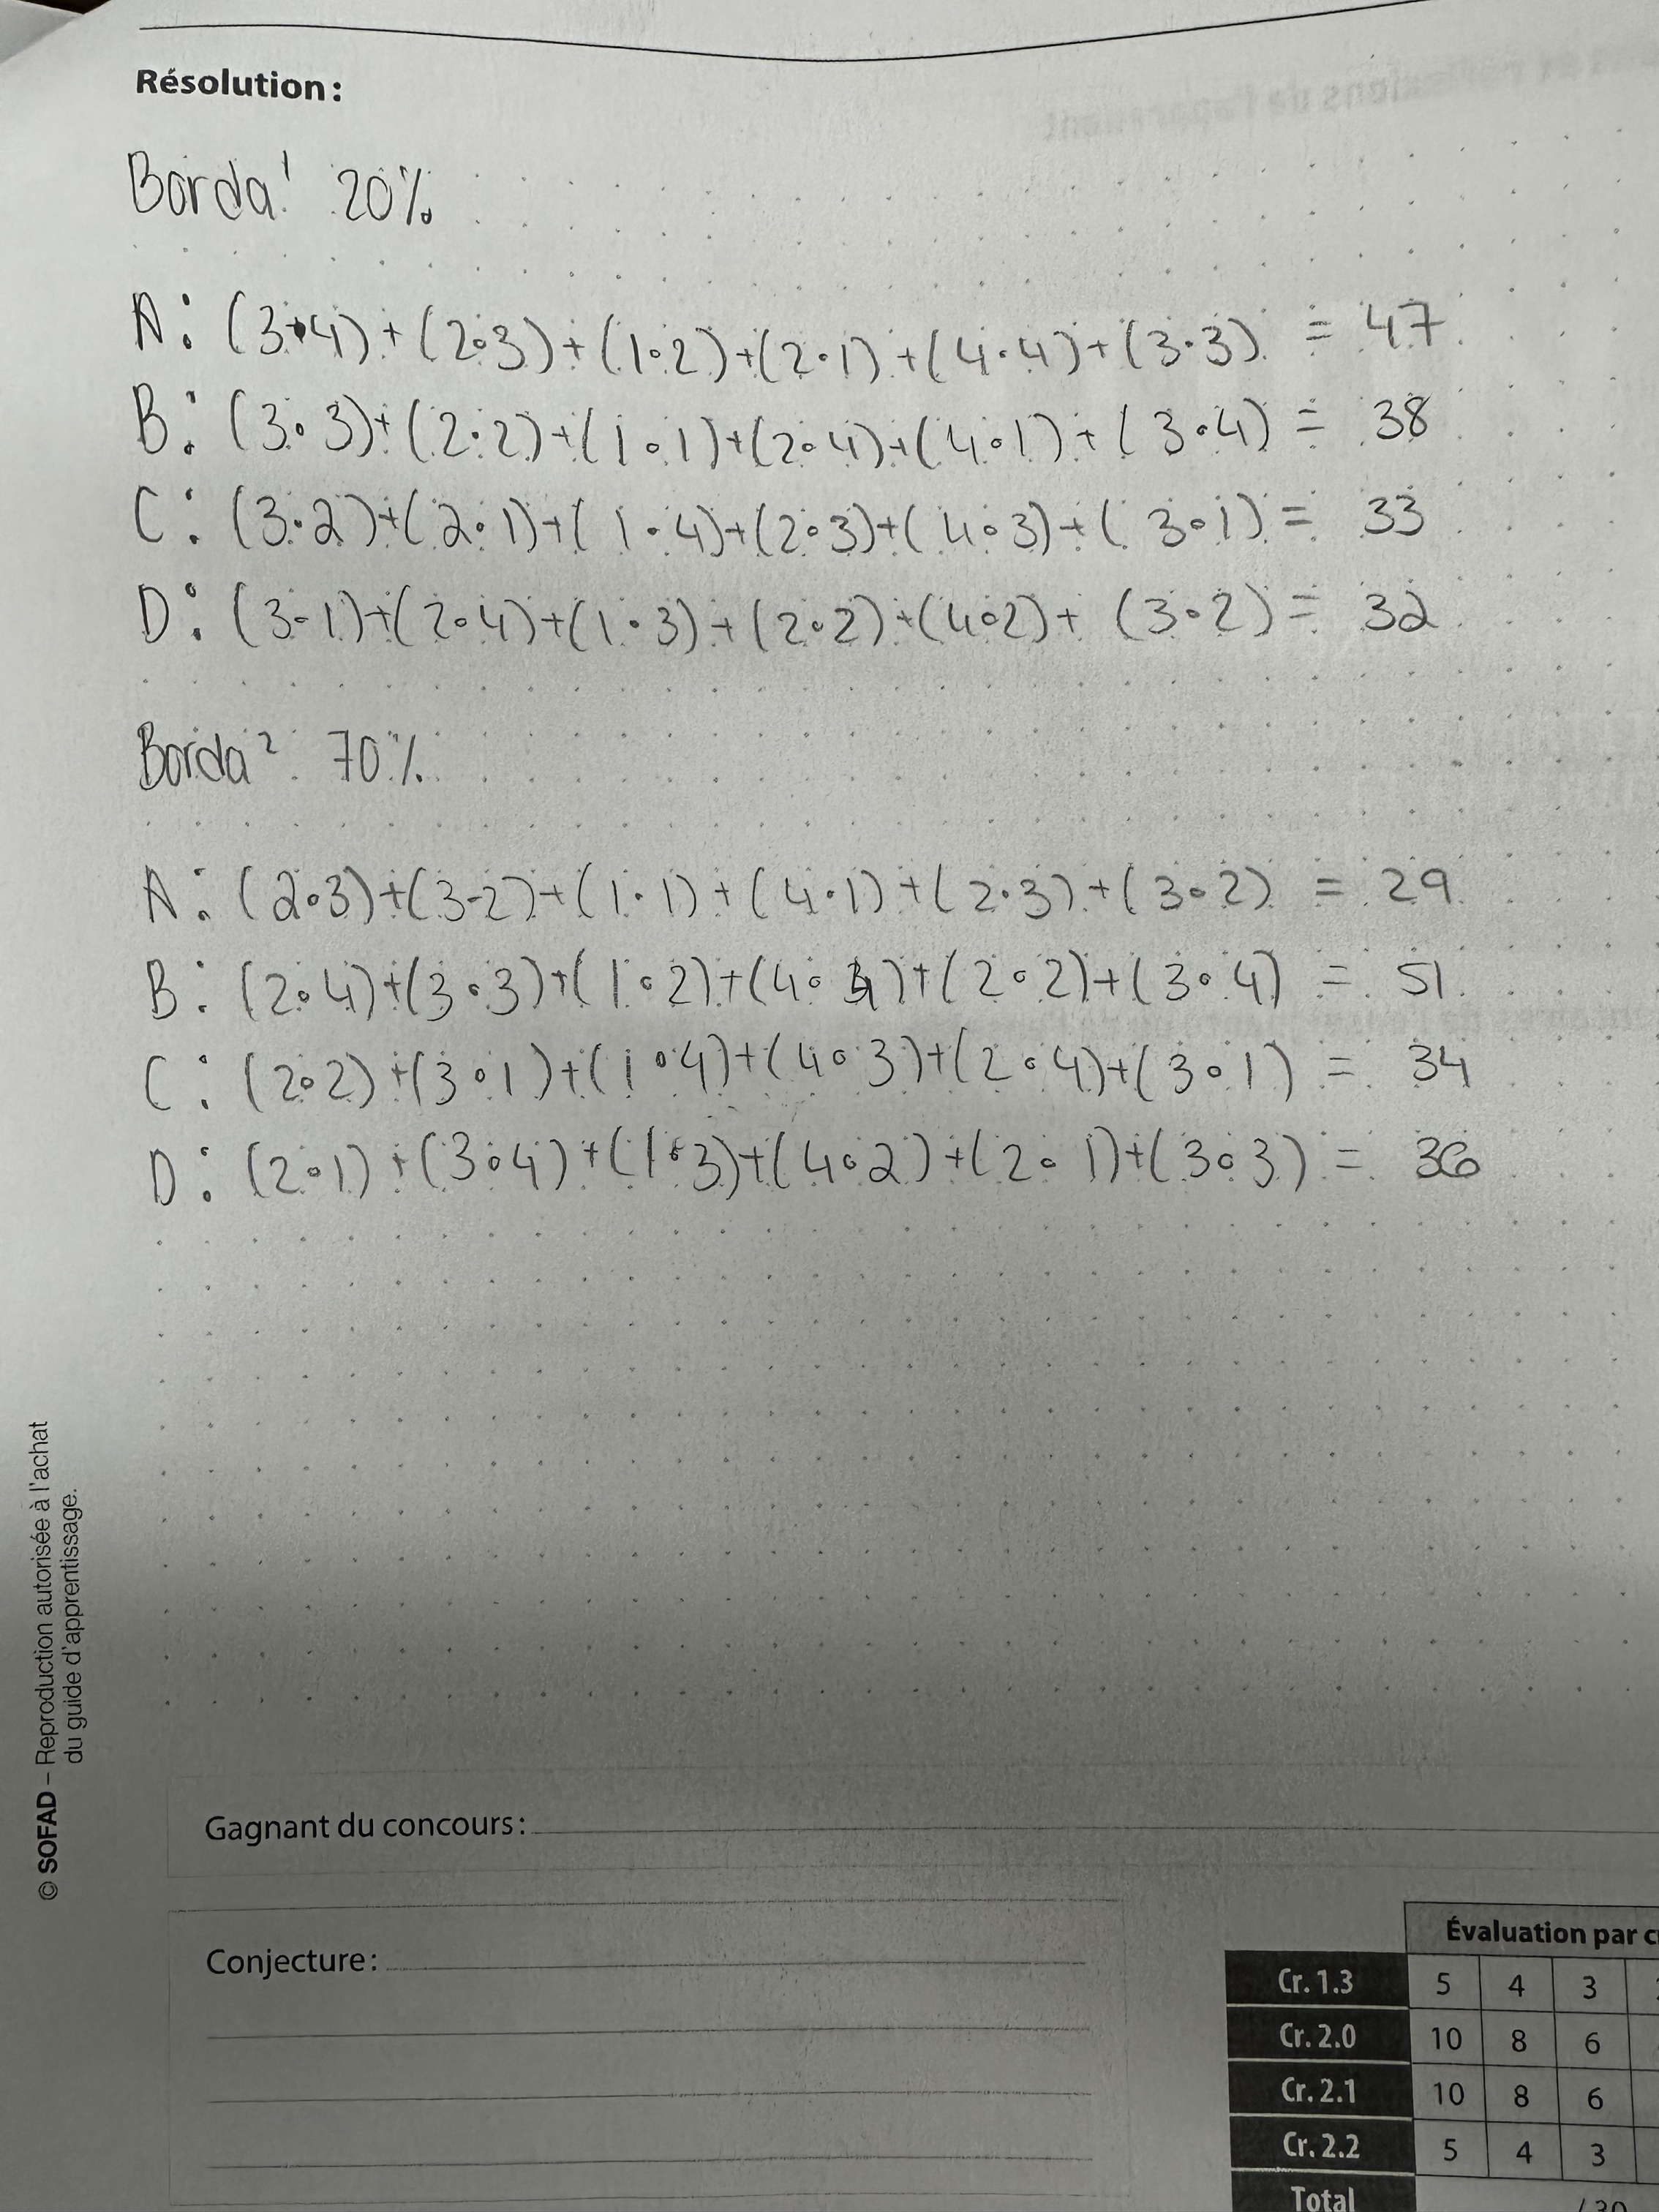 Résolution :
Borda¹ 20%
A: (3•4)+(2•3)+(1•2)+(2•1)+(4•4)+(3•3) = 47
B: (3•3)+(2•2)+(1•1)+(2•4)+(4•1)+(3•4) = 38
C: (3•2)+(2•1)+(1•4)+(2•3)+(4•3)+(3•1) = 33
D: (3•1)+(2•4)+(1•3)+(2•2)+(4•2)+(3•2) = 32
Borda² 70%
A: (2•3)+(3•2)+(1•1)+(4•1)+(2•3)+(3•2) = 29
B: (2•4)+(3•3)+(1•2)+(4•4)+(2•2)+(3•4) = 51
C: (2•2)+(3•1)+(1•4)+(4•3)+(2•4)+(3•1) = 34
D: (2•1)+(3•4)+(1•3)+(4•2)+(2•1)+(3•3) = 36
© SOFAD – Reproduction autorisée à l'achat
du guide d'apprentissage.
Gagnant du concours :
Conjecture :
Évaluation par
Cr. 1.3 5 4 3
Cr. 2.0 10 8 6
Cr. 2.1 10 8 6
Cr. 2.2 5 4 3
Total /30